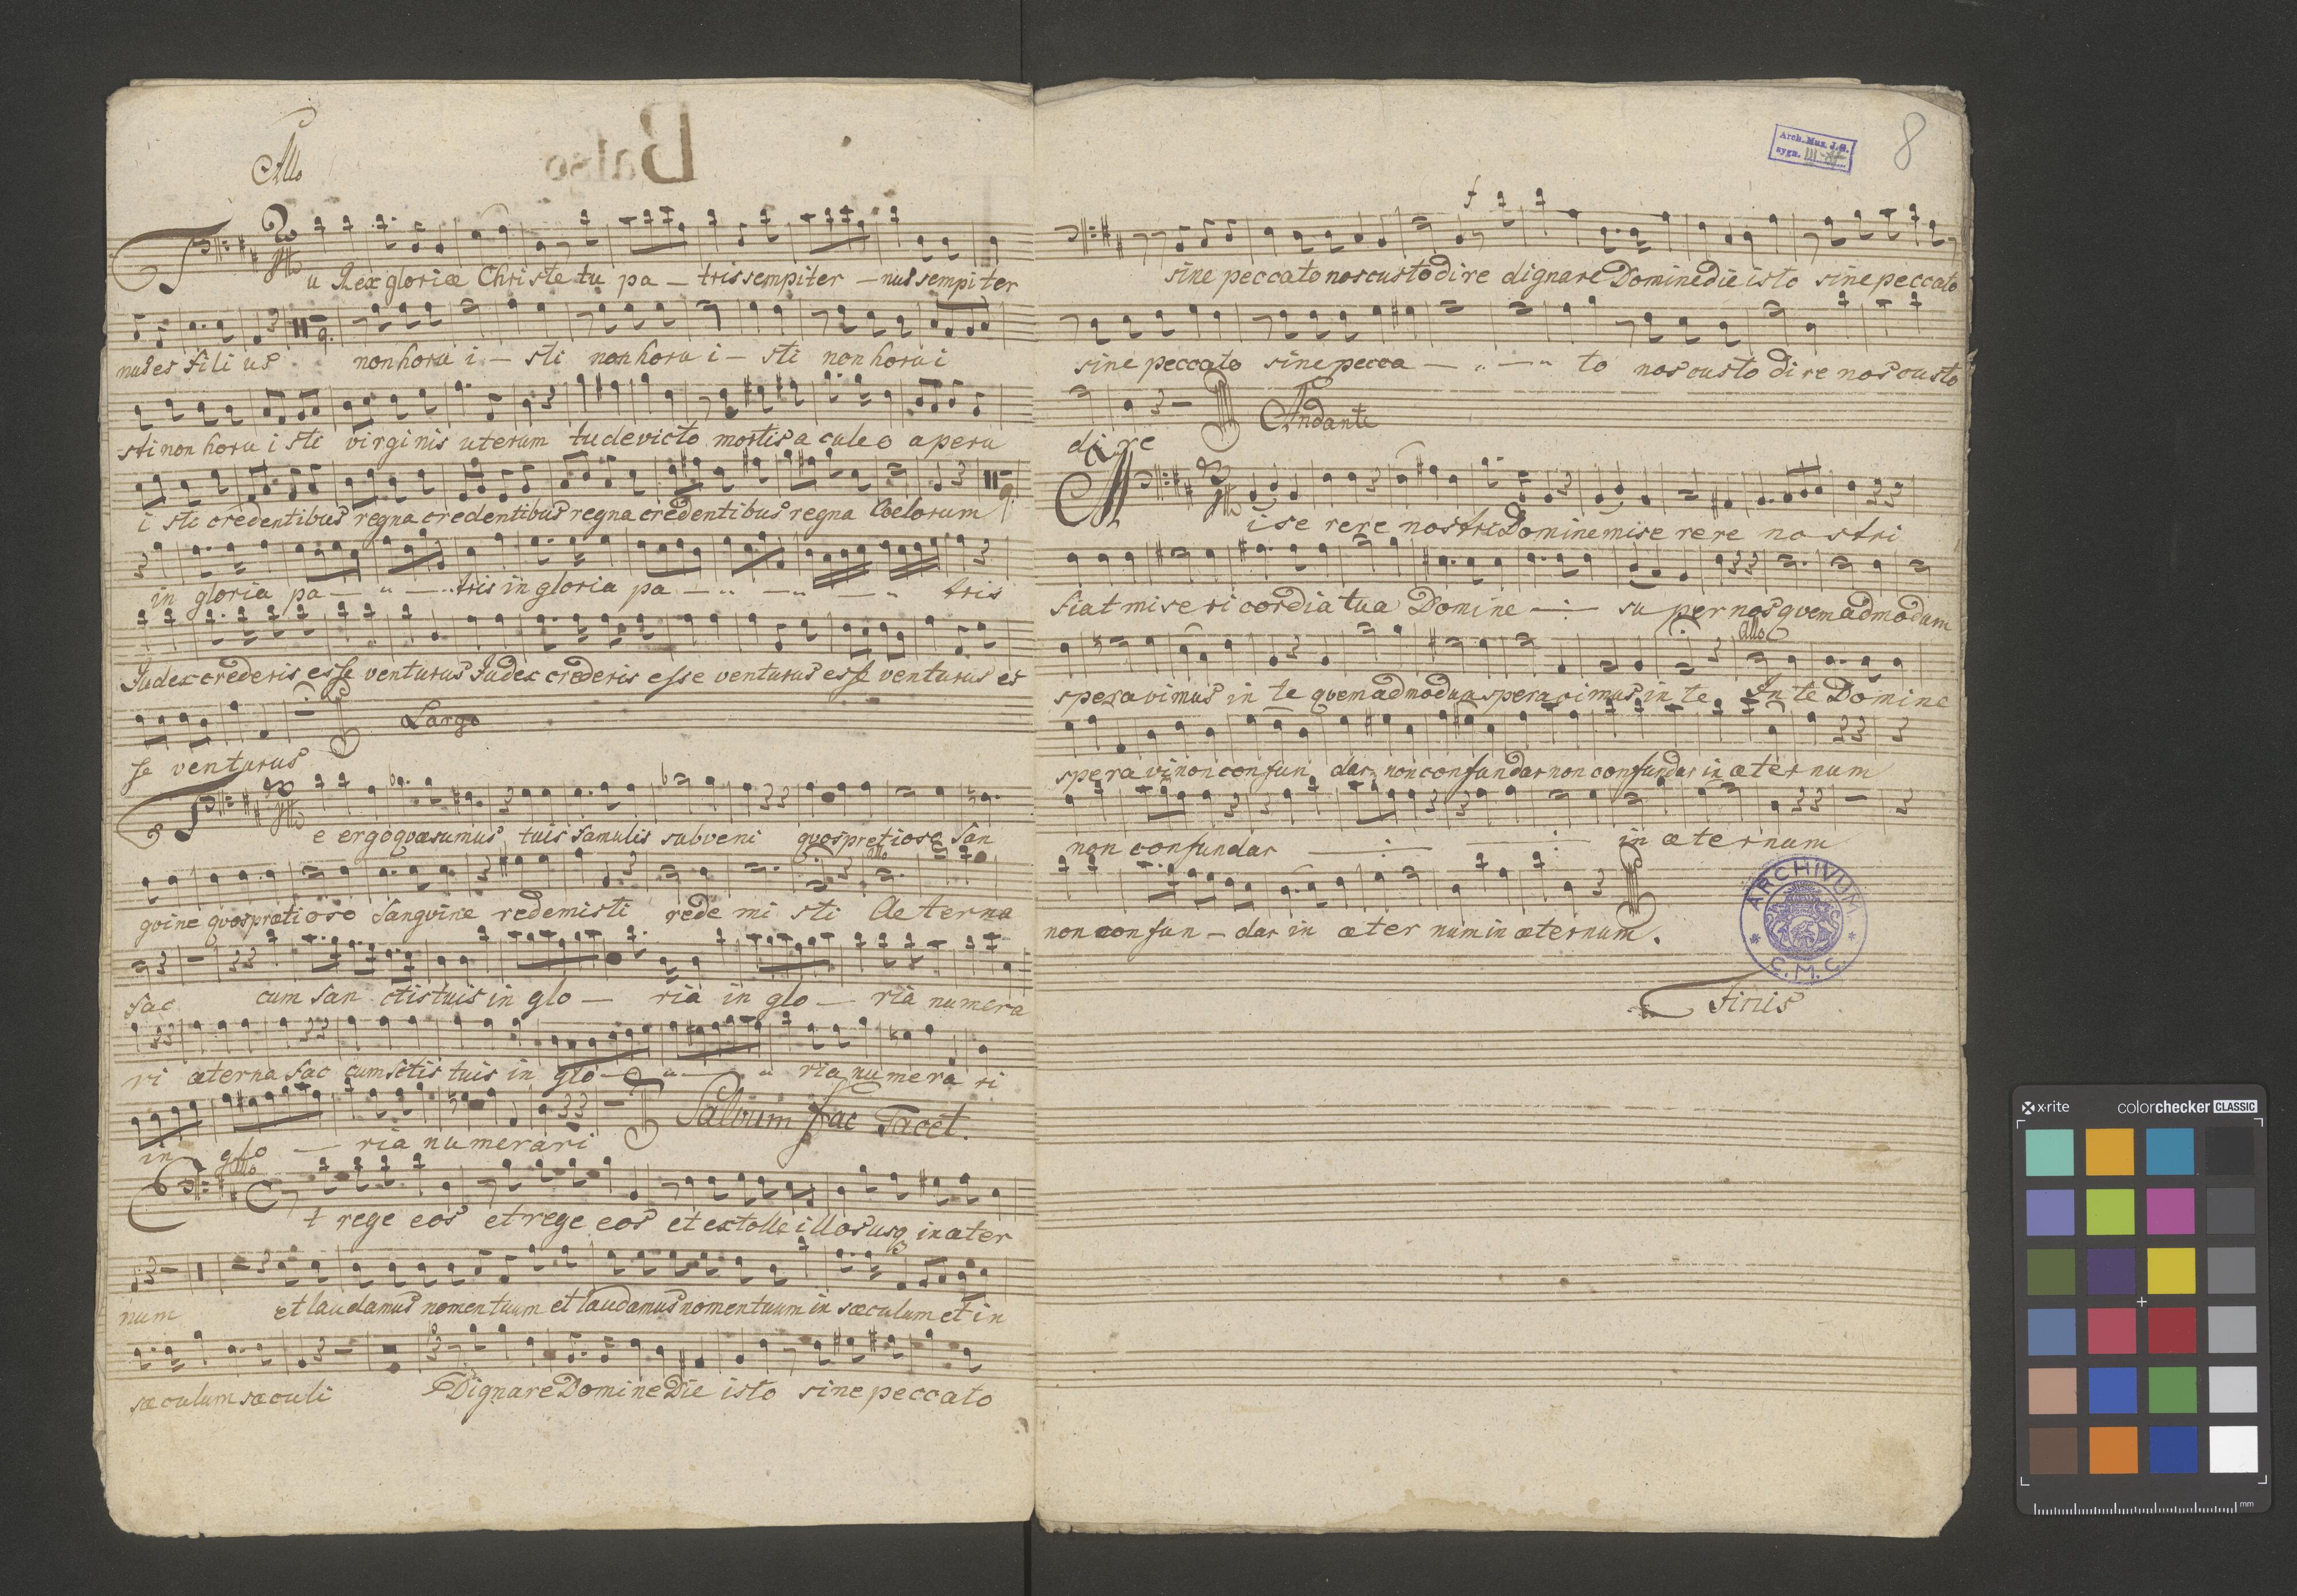 Allo
Basso
Tu Rex gloriæ Christe tu pa - tris sempiter - nus sempiter
nus es filius non horu i - sti non horu i - sti non horu i
sti non horu i sti virginis uterum tu devicto mortis aculeo aperu
i sti credentibus regna credentibus regna credentibus regna Coelorum
in gloria pa - „ - „ tris in gloria pa - „ - „ - „ tris
Judex crederis esse venturus Judex crederis esse venturus esse venturus es
se venturus
Largo
Te ergo quæsumus tuis famulis subveni qvos pretioso San
gvine qvos pratioso Sangvine redemisti rede mi sti Allo Ae terna
fac cum San ctis tuis in glo - ria in glo - ria numera
ri æterna fac cum Sctis tuis in glo - „ - „ ria numera ri
in glo - ria numerari
Salvum fac Tacet.
Allo
Et rege eos et rege eos et extolle illos usq in æter
num et laudamus nomen tuum et laudamus nomen tuum in sæculum et in
sæculum sæculi Dignare Domine Die isto sine peccato
Arch. Muz. J.G.
sygn. III-
8
f
sine peccato nos custodire dignare Domine die isto sine peccato
sine peccato sine pecca - „ - „ to nos custo di re nos custo
di re
Andante
Mise rere nostri Domine mise rere no stri
fiat miseri cordia tua Domine -:- su per nos qvem admodum
Allo
speravimus in te qvem admodum speravimus in te In te Domine
speravi non confun dar, non confundar non confundar in æternum
non confundar -:- -:- in æternum
non confun - dar in æter num in æternum.
ARCHIVUM
* C.M.C. *
Finis
x-rite colorchecker CLASSIC
mm